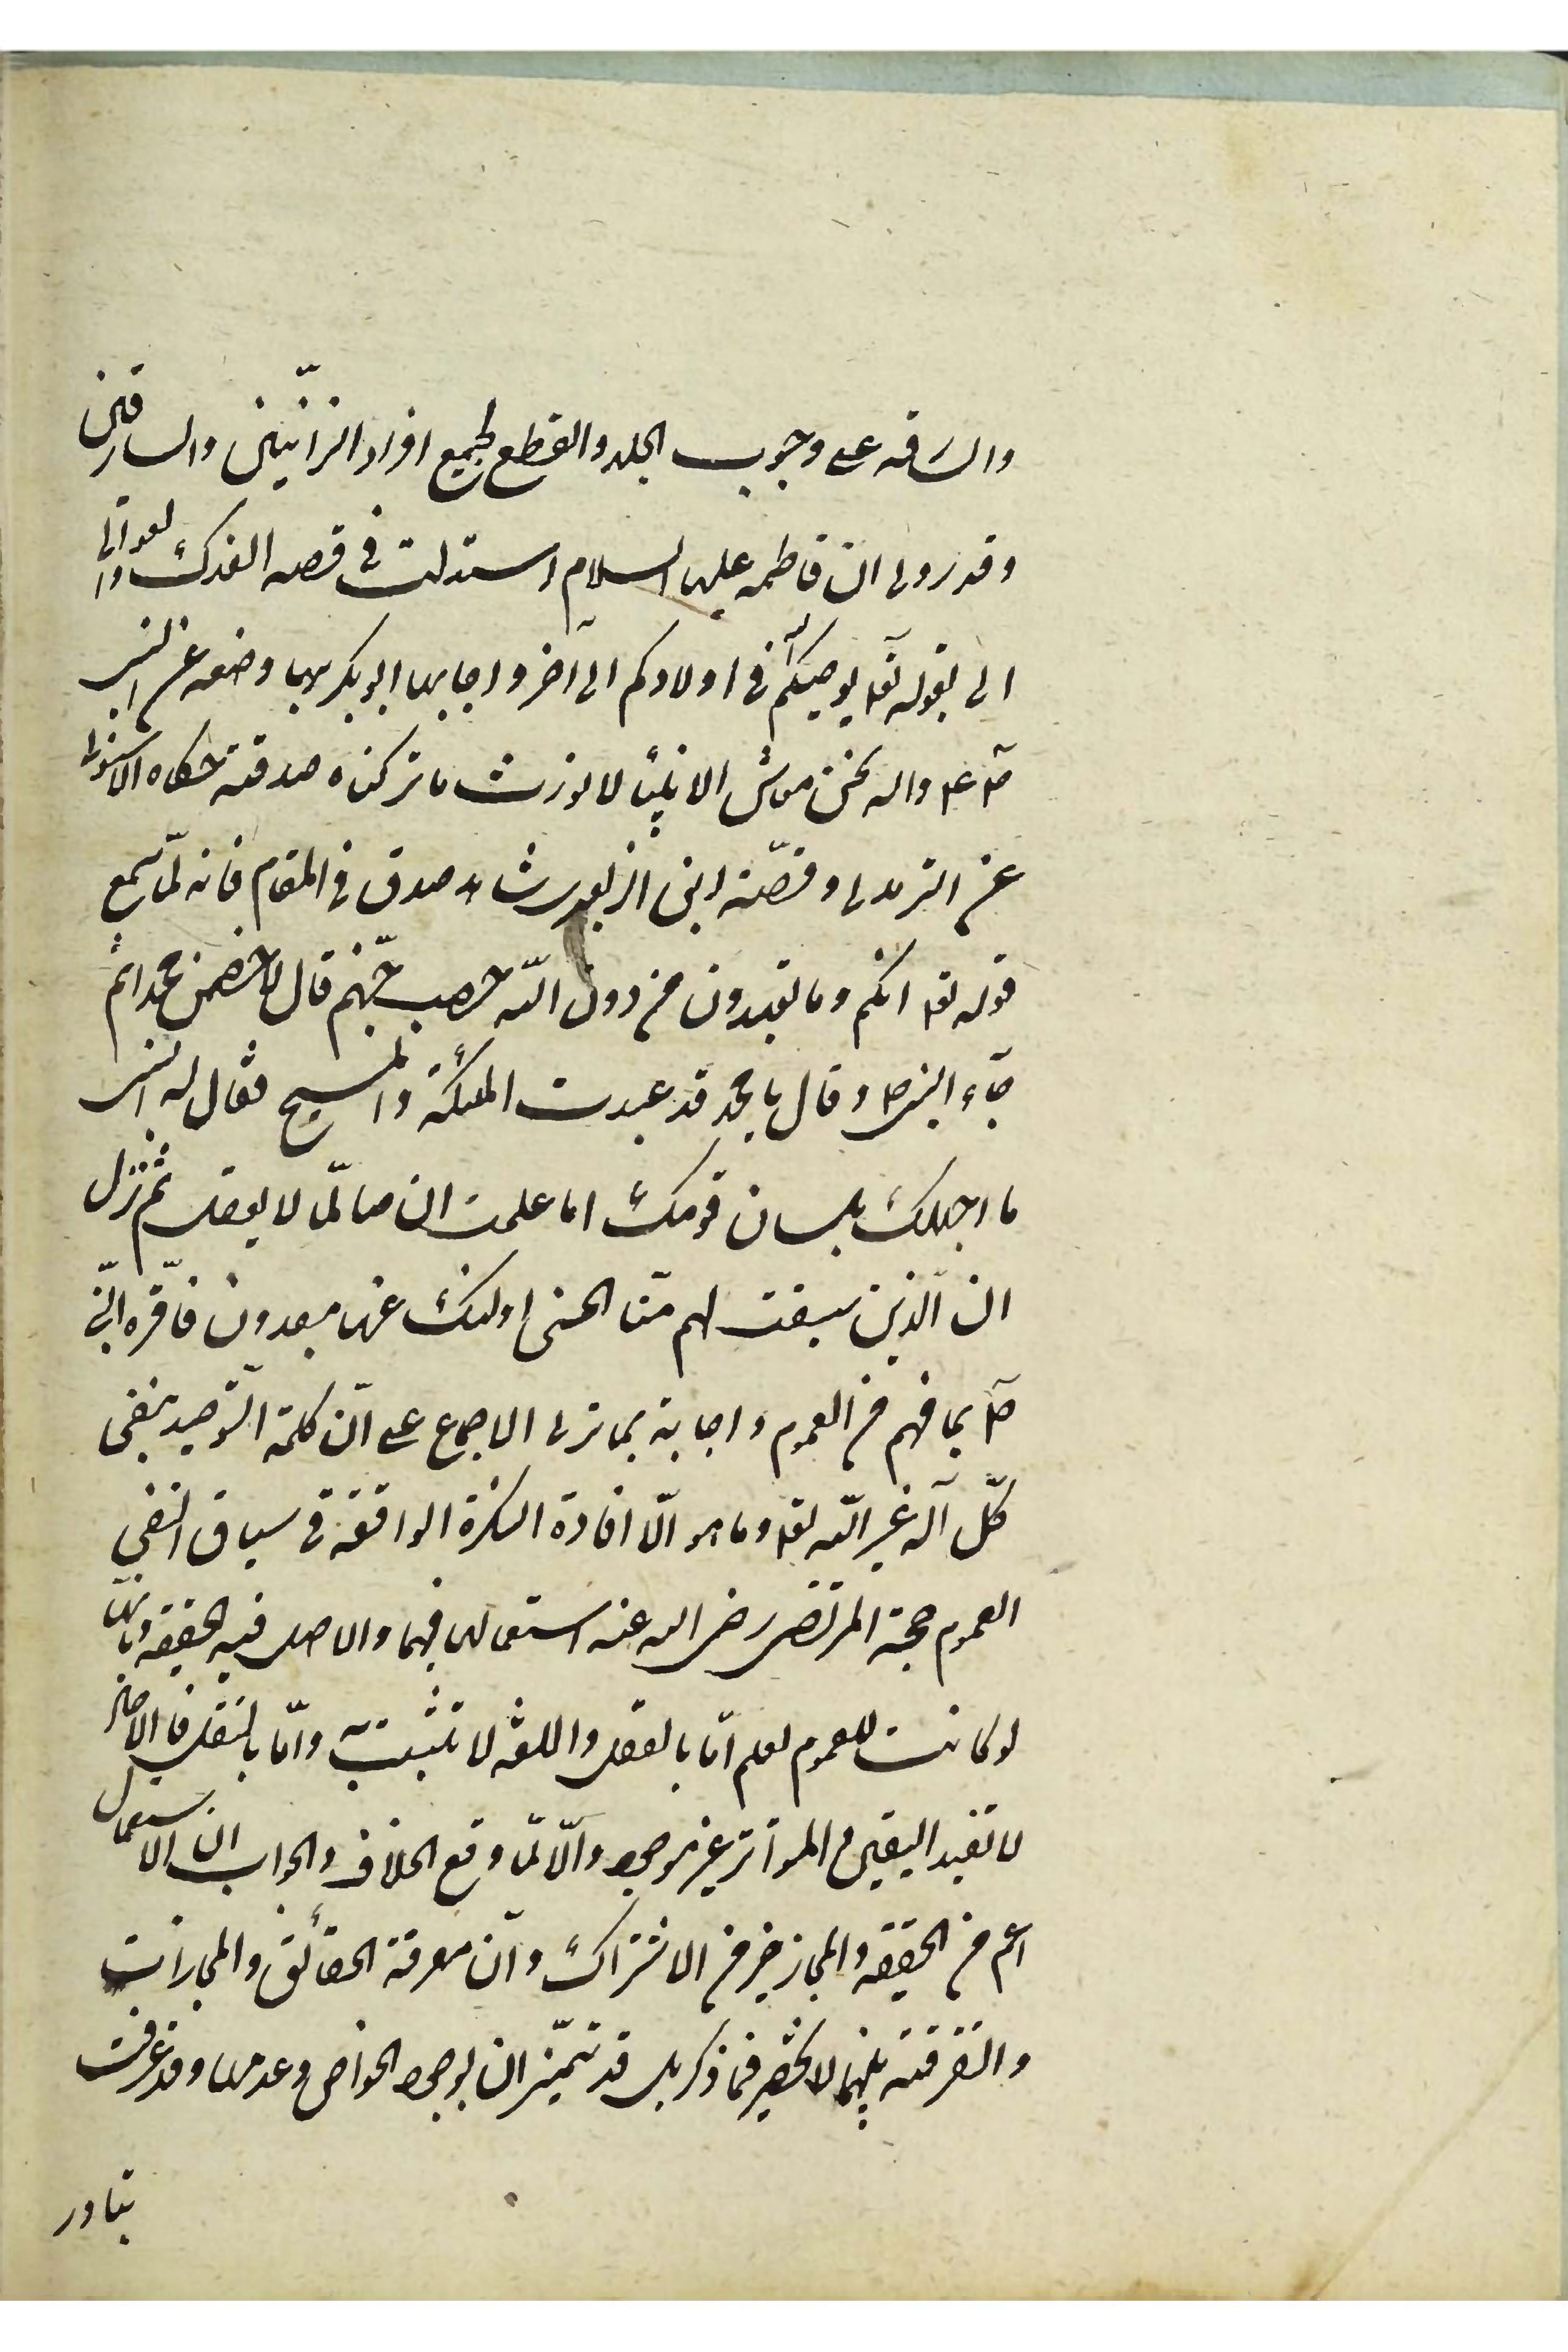 والسارقه على وجوب الجلد والقطع لجميع افراد الزّانيين والسارقين
وقد روى ان فاطمه عليها السلام استدلت فى قصه الفدك والعوالى
الى بقوله تعا يوصيكم الله فى اولادكم الى آخر واجابها ابو بكر بما وضعه عن النبى
ص ع واله نحن معاشر الانبياء لا نورث ما تركناه صدقة حكاه الاسنوى
عن الترمدى وقصّة ابن الزبعرى شاهد صدق فى المقام فانه لمّا سمع
قوله تعا انكم وما تعبدون من دون اللّه حصب جهنّم قال لاخصمن محمدا ثم
جآء النبى ص وقال يا محمد قد عبدت الملئكة والمسيح فقال له النبى
ما اجهلك بلسان قومك اما علمت ان ما لمّا لا يعقل ثم نزل
ان الّذين سبقت لهم منّا الحسنى اولئك عنها مبعدون فاقرّه النّبى
ص بما فهم من العموم واجابة بما ترى الاجماع على انّ كلمة التّوحيد تنفى
كلّ آله غير اللّه تعا وما هو الّا افادة النكرة الواقعة فى سياق النفى
العموم حجة المرتضى رضى الله عنه استعمالها فيهما والاصل فيه الحقيقه وبانّها
لو كانت للعموم لعلم امّا بالعقل واللغة لا تثبت به وامّا بالنقل فالاحاد
لا تفيد اليقين والمتواتر غير موجود والّا لمّا وقع الخلاف والجواب ان الاستعمال
اعم من الحقيقه والمجاز خير من الاشتراك وانّ معرفة الحقائق والمجازات
والتفرقة بينهما لا تنحصر فيما ذكر بل قد تتميّزان بوجود الخواص وعدمها وقد عرفت
تبادر